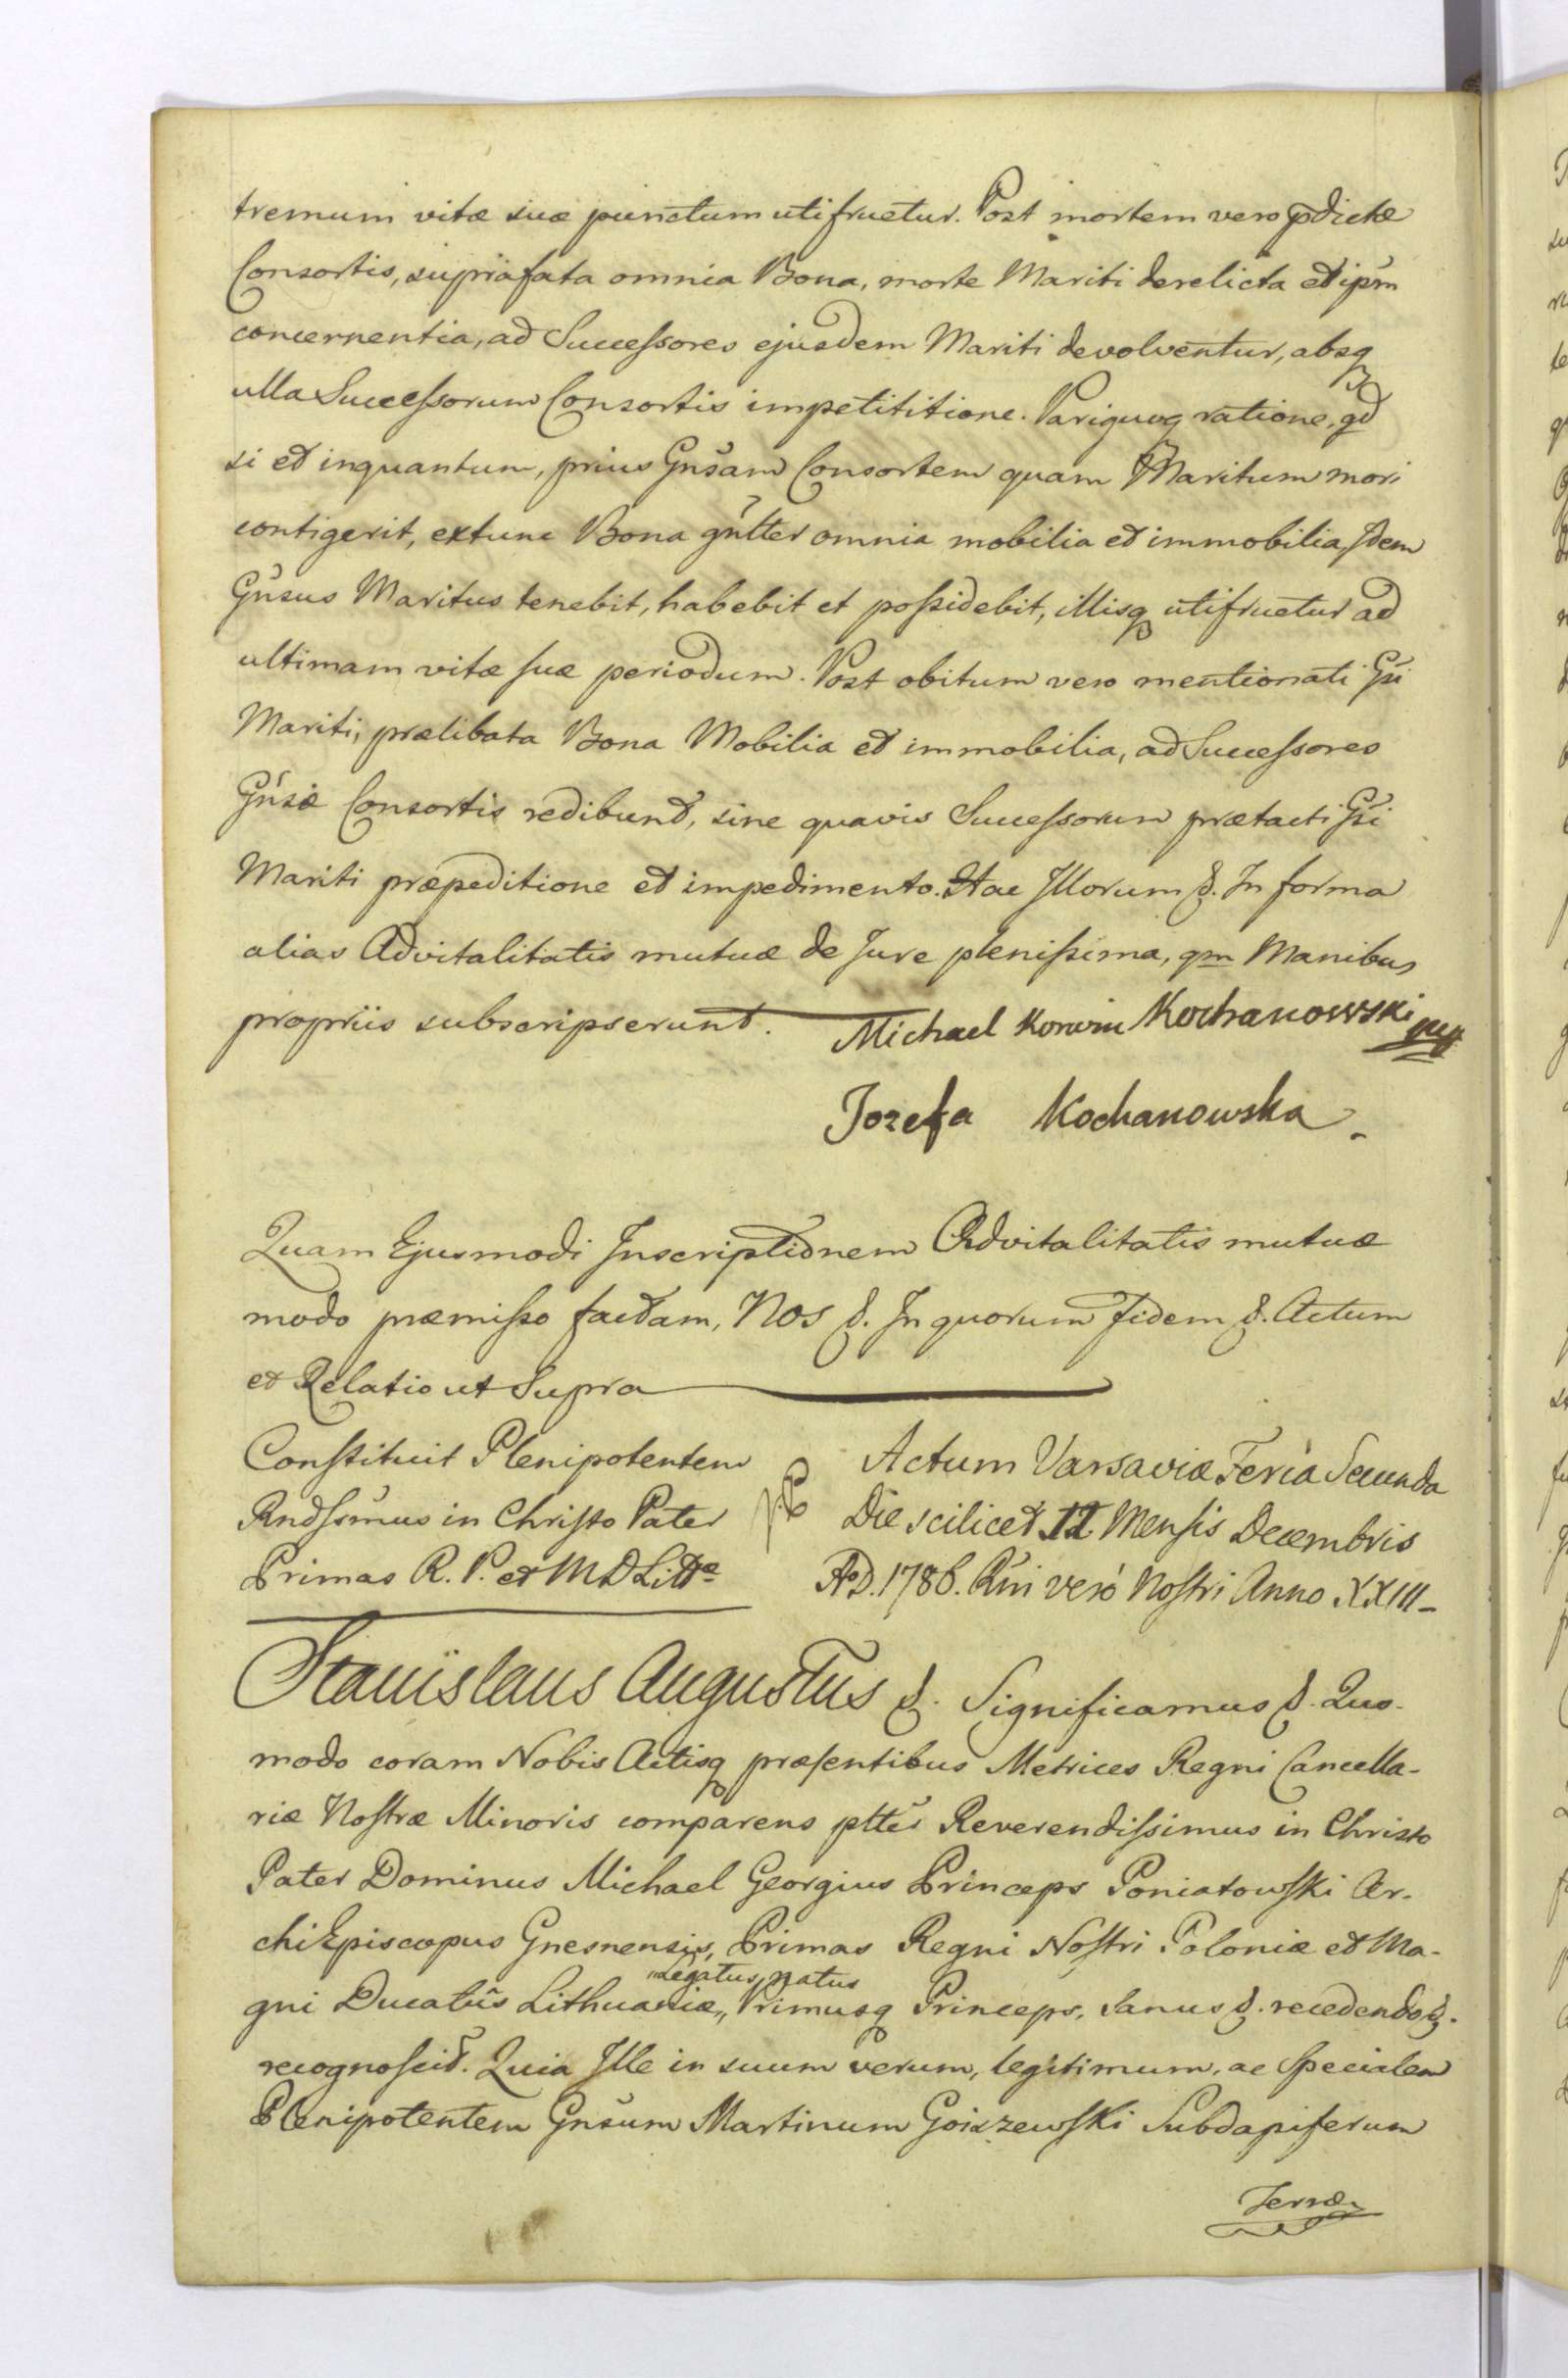 tremum vitæ suæ punctum utifruetur. Post mortem vero p̄dictæ
Consortis, suprafata omnia Bona, morte Mariti derelicta et ipm̃
concernentia, ad Successores ejusdem Mariti devolventur, absq
ulla Successorum Consortis impetititione. Pariquoq ratione, qd
si et inquantum, prius Gnsam Consortem quam Maritum mori
contigerit, extunc Bona gnlter omnia mobilia et immobilia, idem
Gnsus Maritus tenebit, habebit et possidebit, illisq utifruetur ad
ultimam vitæ suæ periodum. Post obitum vero mentionati Gsi
Mariti, prælibata Bona Mobilia et immobilia, ad Successores
Gnsæ Consortis redibunt, sine quavis Successorum prætacti Gsi
Mariti præpeditione et impedimento. Hac Illorum &. In forma
alias Advitalitatis mutuæ de Jure plenissima, qm Manibus
propriis subscripserunt. Michael Korwin Kochanowski mp
Jozefa Kochanowska.
Quam Ejusmodi Inscriptionem Advitalitatis mutuæ
modo præmisso factam, Nos &. In quorum Fidem &. Actum
et Relatio ut Supra
Constituit Plenipotentem
Rndssimus in Christo Pater
Primas R. P. et M D Litt̃æ
Actum Varsaviæ Feria Secunda
Die scilicet 11 Mensis Decembris
A.D. 1786. Rni vero Nostri Anno XXIII
Stanislaus Augustus &. Significamus &. Quo-
modo coram Nobis Actisq præsentibus Metrices Regni Cancella-
riæ Nostræ Minoris comparens pltter Reverendissimus in Christo
Pater Dominus Michael Georgius Princeps Poniatowski Ar-
chiEpiscopus Gnesnensis, Primas Regni Nostri Poloniæ et Ma-
Legatus natus
gni Ducatus Lithuaniæ,, Primusq Princeps, Sanus &. recedendo &.
recognoscit. Quia Ille in suum verum, legitimum, ac Specialem
Plenipotentem Gnsum Martinum Goiszewski Subdapiferum
Terræ